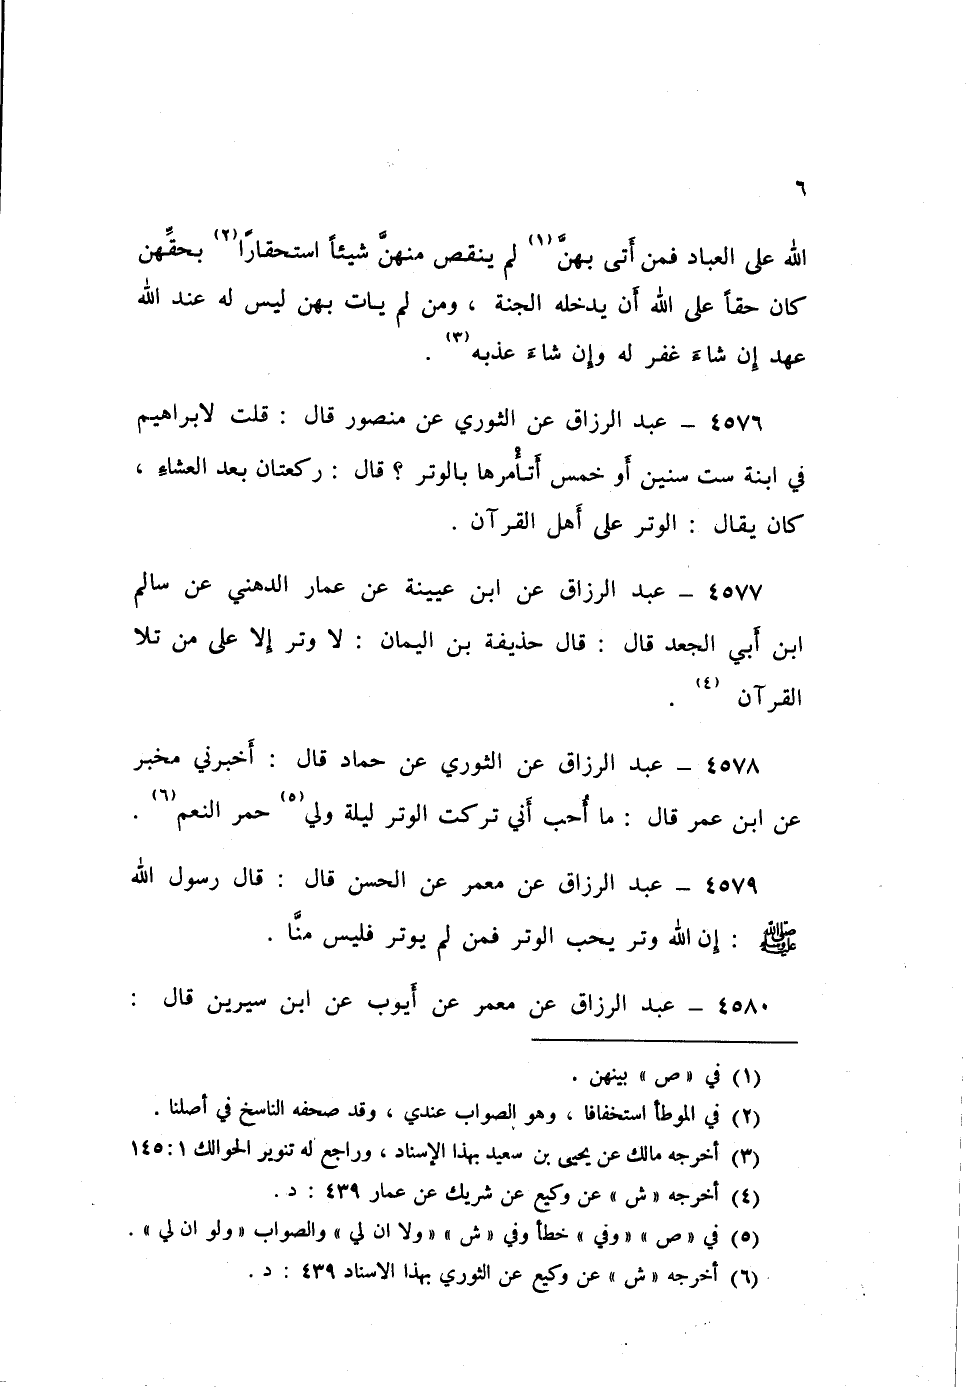 ٦
الله على العباد فمن أَتى بهنَّ(١) لم ينقص منهنَّ شيئاً استحقارًا(٢) بحقِّهن
كان حقاً على الله أَن يدخله الجنة ، ومن لم يات بهن ليس له عند الله
عهد إِن شاءَ غفر له وإِن شاءَ عذبه(٣) .
٤٥٧٦ ــ عبد الرزاق عن الثوري عن منصور قال : قلت لابراهيم
في ابنة ست سنين أَو خمس أَتأْمرها بالوتر ؟ قال : ركعتان بعد العشاءِ ،
كان يقال : الوتر على أَهل القرآن .
٤٥٧٧ ــ عبد الرزاق عن ابن عيينة عن عمار الدهني عن سالم
ابن أَبي الجعد قال : قال حذيفة بن اليمان : لا وتر إلا على من تلا
القرآن (٤) .
٤٥٧٨ ــ عبد الرزاق عن الثوري عن حماد قال : أَخبرني مخبر
عن ابن عمر قال : ما أُحب أَني تركت الوتر ليلة ولي(٥) حمر النعم(٦) .
٤٥٧٩ ــ عبد الرزاق عن معمر عن الحسن قال : قال رسول الله
ﷺ : إن الله وتر يحب الوتر فمن لم يوتر فليس منَّا .
٤٥٨٠ ــ عبد الرزاق عن معمر عن أَيوب عن ابن سيرين قال :
(١) في « ص » بينهن .
(٢) في الموطأ استخفافا ، وهو الصواب عندي ، وقد صحفه الناسخ في أصلنا .
(٣) أخرجه مالك عن يحيى بن سعيد بهذا الإسناد ، وراجع له تنوير الحوالك ١ : ١٤٥
(٤) أخرجه « ش » عن وكيع عن شريك عن عمار ٤٣٩ : د .
(٥) في « ص » « وفي » خطأ وفي « ش » « ولا ان لي » والصواب « ولو ان لي » .
(٦) أخرجه « ش » عن وكيع عن الثوري بهذا الاسناد ٤٣٩ : د .